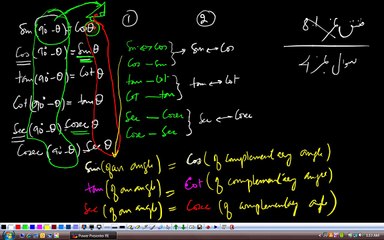 Sin (90°-θ) = Cosθ
Cos (90°-θ) = Sinθ
tan (90°-θ) = Cotθ
Cot (90°-θ) = tanθ
Sec (90°-θ) = Cosecθ
Cosec (90°-θ) = Secθ
①
Sin ↔ Cos
Cos - Sin
tan - Cot
Cot - tan
Sec - Cosec
Cosec - Sec
②
Sin ↔ Cos
tan ↔ Cot
Sec ↔ Cosec
سوال نمبر 4
Sin (of an angle) = Cos (of complementary angle)
tan (of an angle) = Cot (of complementary angle)
Sec (of an angle) = Cosec (of complementary angle)